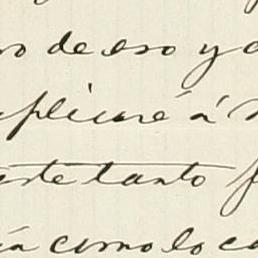 ro de eso y a
uplicaré á
este tanto
ía como lo ca